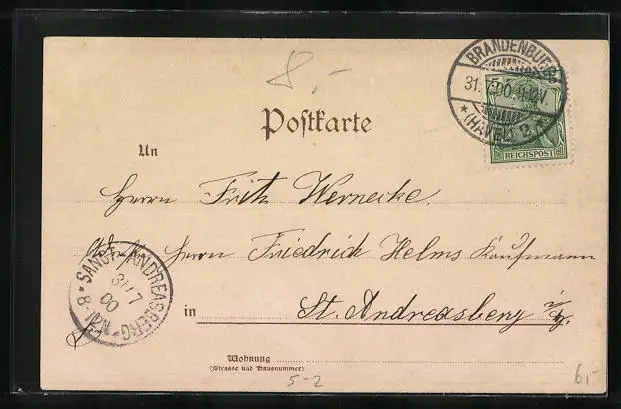 8,-
BRANDENBURG
31.7.00.11-12V.
* (HAVEL) *
REICHSPOST
Postkarte
An
Herrn Fritz Wernecke.
Adr. Herrn Friedrich Helms Kaufmann
SANCT ANDREASBERG
31 7
00
8-9N.
in St. Andreasberg i/H.
Wohnung
(Strasse und Hausnummer)
5-2
6,-